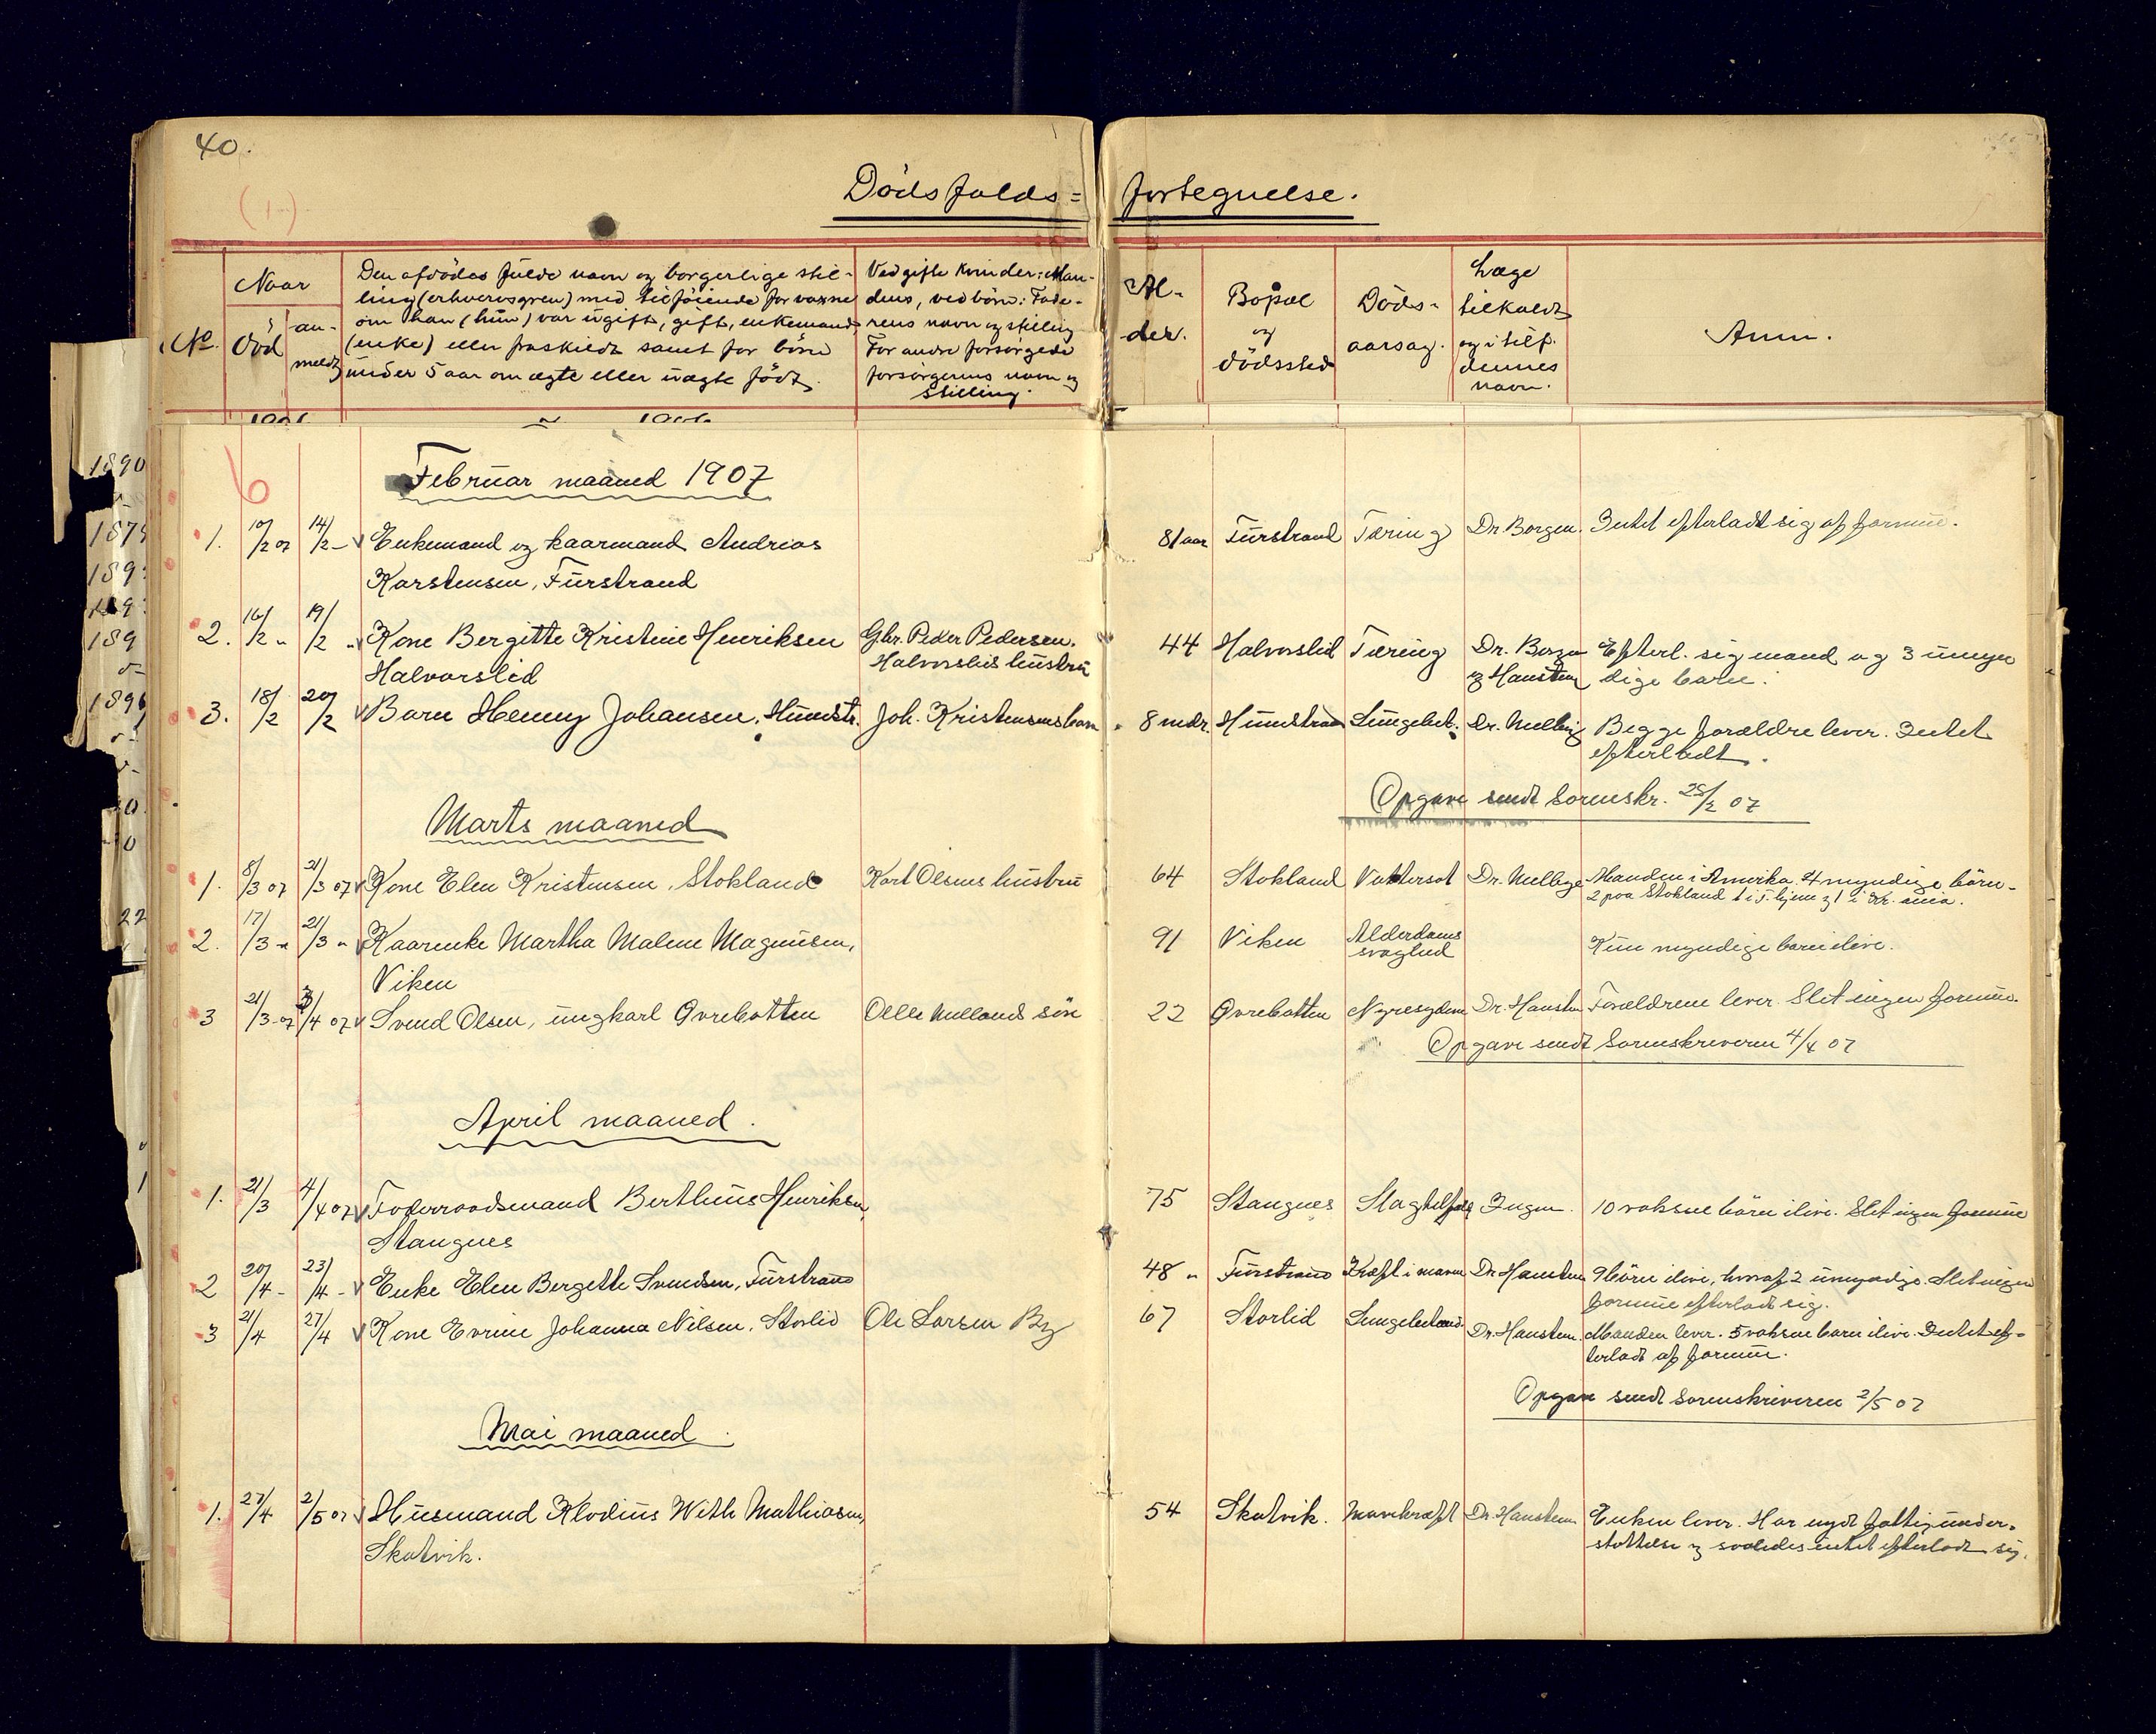 40.
(1)
Dödsfalds= fortegnelse.
No.
Naar
död
an-
meldt
Den afdödes fulde navn og borgerlige stil-
ling (erhvervsgren) med tilföiende for voxne
om han (hun) var ugift, gift, enkemand
(enke) eller fraskildt samt for börn
under 5 aar om ægte eller uægte födt.
Ved gifte kvinder: Man-
dens, ved börn: Fade-
rens navn og stilling
For andre forsörgede
forsörgerens navn og
stilling.
Al-
der.
Bopæl
og
dödssted
Döds-
aarsag.
Læge
tilkaldt
og i tilf.
dennes
navn.
Anm.
6
Februar maaned 1907
1. 10/2 07 14/2 - Enkemand og kaarmand Andrias 81 aar Furstrand Tæring Dr. Borgen. Intet efterladt sig af formue.
Karstensen, Furstrand
2. 16/2 " 19/2 " Kone Bergitte Kristine Henriksen Gbr. Peder Pedersen. 44 Halvorslid Tæring Dr. Borgen Efterl. sig mand og 3 umyn
Halvorslid Halvorslid hustru og Hansteen dige barn.
3. 18/2 20/2 Barn Henny Johansen, Hundstr. Joh. Kristensens barn 8 mdr. Hundstrand Lungebet. Dr. Mellbye Begge forældre lever. Intet
efterladt.
Opgave sendt Sorenskr. 28/2 07
Marts maaned
1. 8/3 07 21/3 07 Kone Elen Kristensen, Stokland Karl Olsens hustru 64 Stokland Vattersot Dr. Mellbye Manden i Amerika. 4 myndige börn-
2 paa Stokland 1 i T. hjem og 1 i Kr. ania.
2. 17/3 " 21/3 " Kaarenke Martha Malene Magnusen, 91 Viken Alderdoms Kun myndige barn ilive.
svaghed
Viken
3 21/3 07 3/4 07 Svend Olsen, ungkarl Övrebotten Olle Mellands sön 22 Övrebotten Nyresygdom Dr. Hansteen Forældrene lever. Slet ingen formue.
Opgave sendt Sorenskriveren 4/4 07
April maaned.
1. 21/3 4/4 07 Foderraadsmand Berthius Henriksen, 75 Stangnes Slagtilfæld Ingen. 10 voksne börn ilive. Slet ingen formue
Stangnes
2 20/4 - 23/4 - Enke Elen Bergette Svendsen, Furstrand 48 " Furstrand Kræft i maven Dr. Hansteen 9 börn ilive, hvoraf 2 umyndige. Slet ingen
formue efterladt sig.
3 21/4 27/4 Kone Evrine Johanna Nilsen. Storlid Ole Larsen By 67 Storlid Lungebetænd. Dr. Hansteen. Manden lever. 5 voksne barn ilive. Intet ef-
terladt af formue.
Opgave sendt sorenskriveren 2/5 07
Mai maaned.
1. 27/4 2/5 07 Husmand Klodius With Mathiasen, 54 Skatvik. Mavekræft Dr. Hansteen Enken lever. Har nydt fattigunder-
Skatvik. stöttelse og saaledes intet efterladt sig.